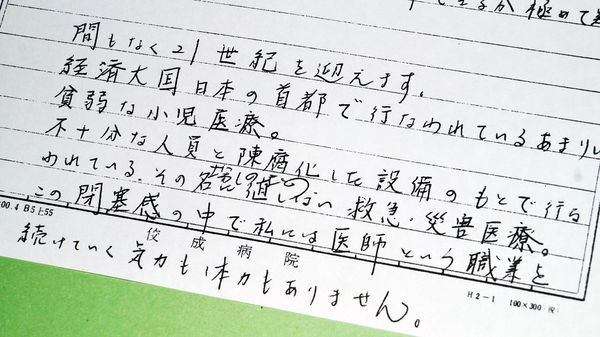 できるか極めて
間もなく21世紀を迎えます。
経済大国日本の首都で行なわれているあまりに
貧弱な小児医療。
不十分な人員と陳腐化した設備のもとで行な
われている、その名に値しない 救急・災害医療。
この閉塞感の中で私には医師という職業を
00.4 B5上55
佼成病院
H2-1 100×300(枚)
続けていく気力も体力もありません。